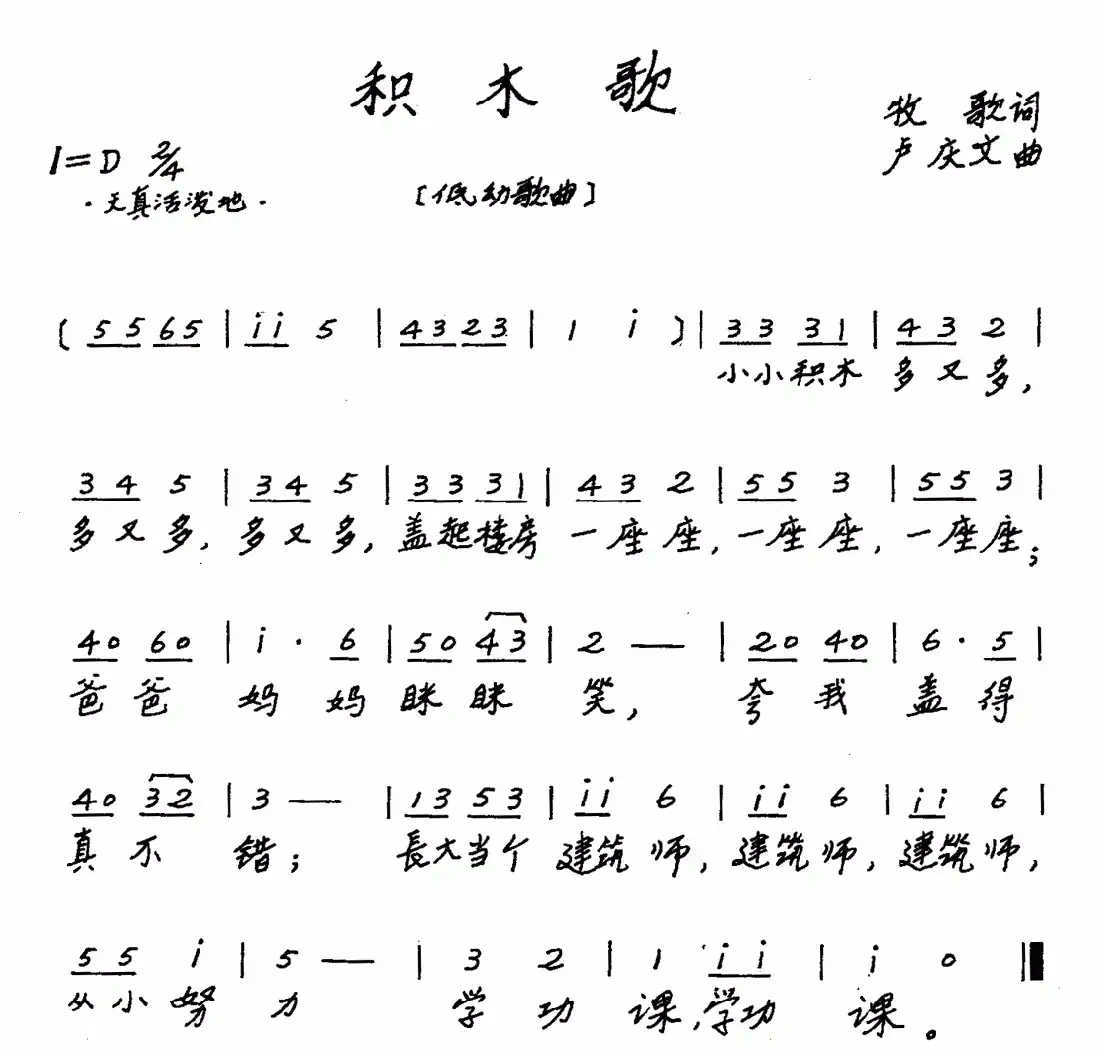 积木歌
牧 歌词
1=D 2/4
卢庆文曲
·天真活泼地·
[低幼歌曲]
(5 5 6 5 | i i 5 | 4 3 2 3 | 1 i ) | 3 3 3 1 | 4 3 2 |
小小积木 多又多,
3 4 5 | 3 4 5 | 3 3 3 1 | 4 3 2 | 5 5 3 | 5 5 3 |
多又多, 多又多, 盖起楼房 一座座, 一座座, 一座座;
4 0 6 0 | i · 6 | 5 0 4 3 | 2 — | 2 0 4 0 | 6 · 5 |
爸爸 妈妈 眯眯 笑, 夸我 盖得
4 0 3 2 | 3 — | 1 3 5 3 | i i 6 | i i 6 | i i 6 |
真不 错; 長大当个 建筑师, 建筑师, 建筑师,
5 5 i | 5 — | 3 2 | 1 i i | i 0 ‖
从小努 力 学功 课,学功 课。